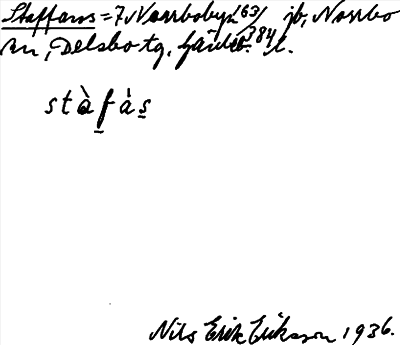 Staffans = 7 Norrbobyn 1631 jb, Norrbo
sn, Delsbo tg, Gävleb. 384 l.
stàfàs
Nils Erik Eriksson 1936.